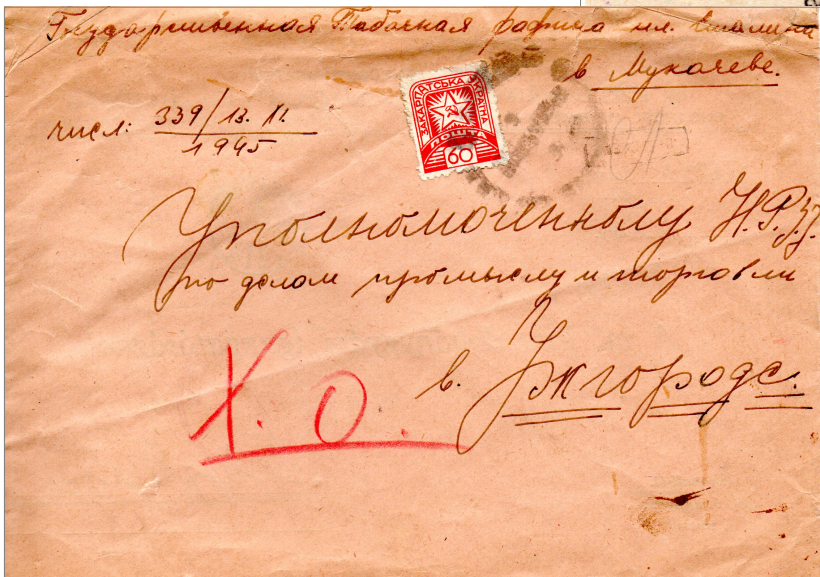 Государственная Табачная фабрика им. Сталина
в Мукачеве.
числ: 339/13. XI.
1945
ЗАКАРПАТСЬКА УКРАЇНА
ПОШТА
60
Уполномоченному Н.Р.З.У.
по делам промыслу и торговли
в. Ужгороде.
Х. О.